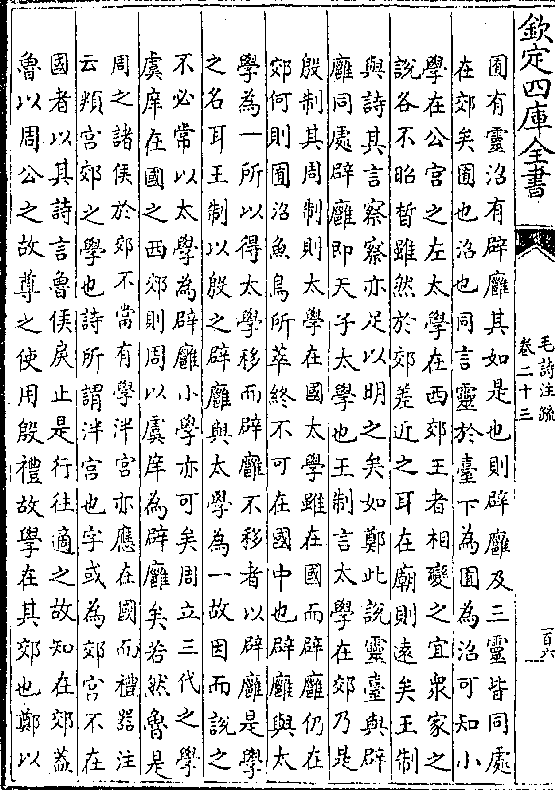 欽定四庫全書
毛詩注疏
卷二十三
一百六
囿有靈沼有辟廱其如是也則辟廱及三靈皆同處
在郊矣囿也沼也同言靈於臺下為囿為沼可知小
學在公宫之左太學在西郊王者相變之宜衆家之
説各不昭晳雖然於郊差近之耳在廟則逺矣王制
與詩其言察察亦足以明之矣如鄭此説靈臺與辟
廱同處辟廱即天子太學也王制言太學在郊乃是
殷制其周制則太學在國太學雖在國而辟廱仍在
郊何則囿沼魚鳥所萃終不可在國中也辟廱與太
學為一所以得太學移而辟廱不移者以辟廱是學
之名耳王制以殷之辟廱與太學為一故因而説之
不必常以太學為辟廱小學亦可矣周立三代之學
虞庠在國之西郊則周以虞庠為辟廱矣若然魯是
周之諸侯於郊不當有學泮宫亦應在國而禮器注
云頖宫郊之學也詩所謂泮宫也字或為郊宫不在
國者以其詩言魯侯戾止是行往適之故知在郊葢
魯以周公之故尊之使用殷禮故學在其郊也鄭以